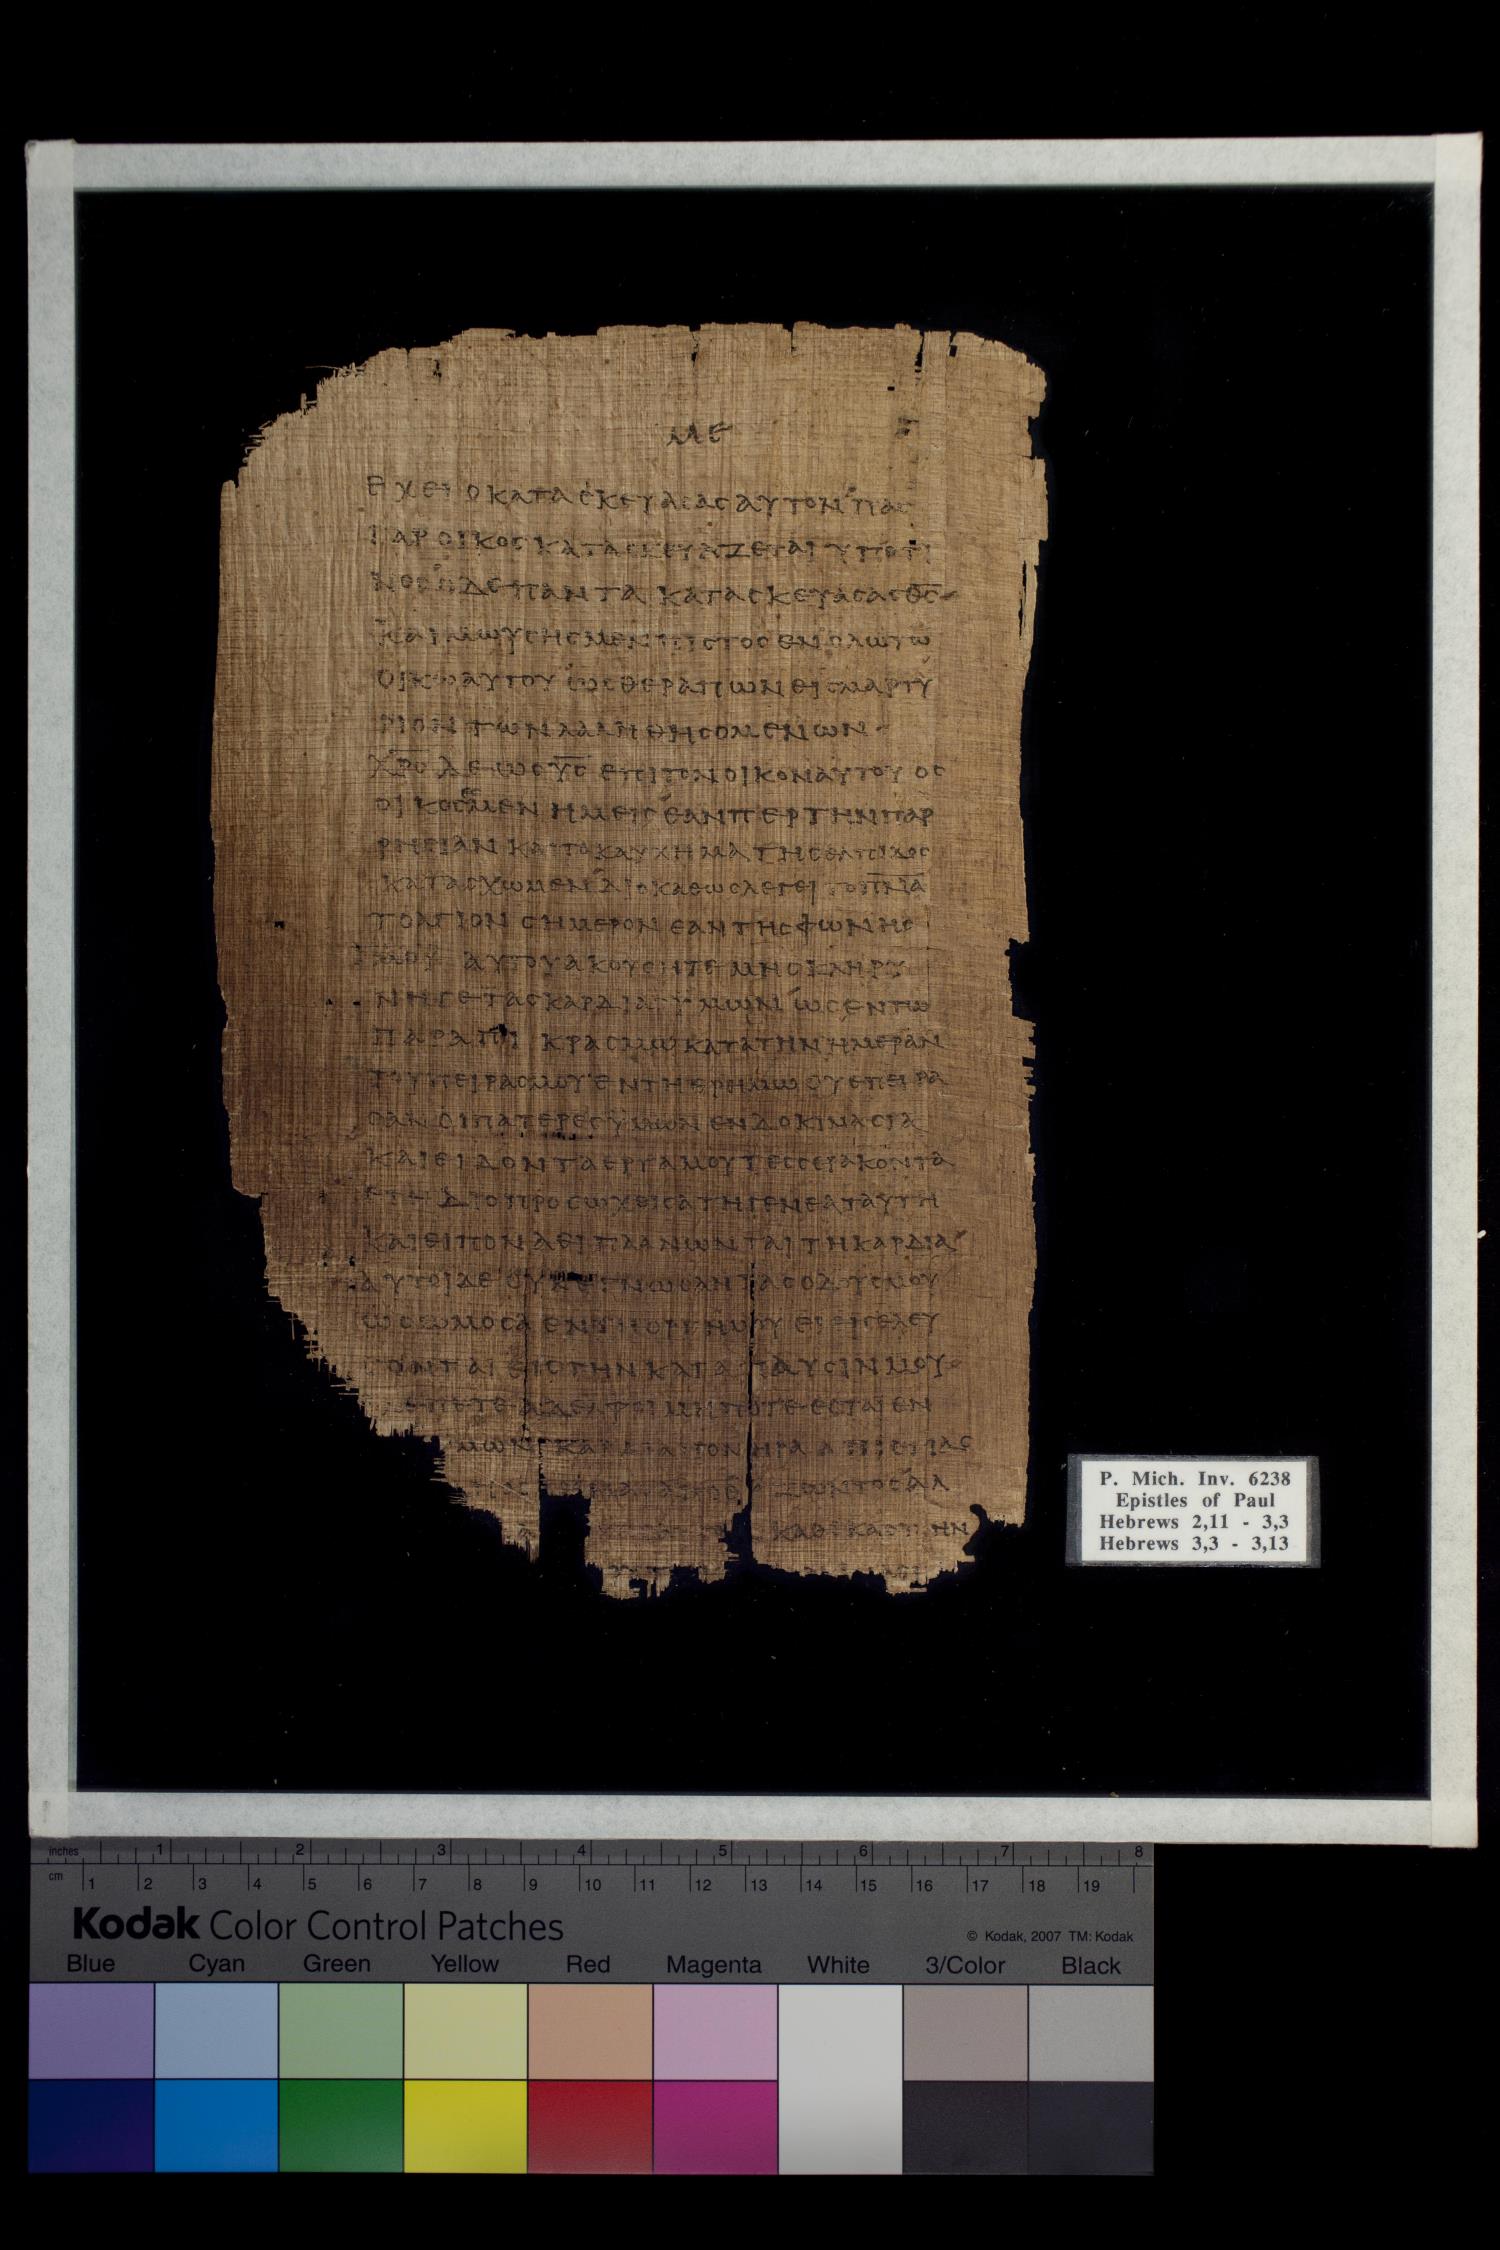 ΜΕ
ΕΧΕΙ Ο ΚΑΤΑΣΚΕΥΑΣΑΣ ΑΥΤΟΝ ΠΑΣ
ΓΑΡ ΟΙΚΟΣ ΚΑΤΑΣΚΕΥΑΖΕΤΑΙ ΥΠΟ ΤΙ
ΝΟΣ Ο ΔΕ ΠΑΝΤΑ ΚΑΤΑΣΚΕΥΑΣΑΣ Θ̅Σ̅
ΚΑΙ ΜΩΥΣΗΣ ΜΕΝ ΠΙΣΤΟΣ ΕΝ ΟΛΩ ΤΩ
ΟΙΚΩ ΑΥΤΟΥ ΩΣ ΘΕΡΑΠΩΝ ΕΙΣ ΜΑΡΤΥ
ΡΙΟΝ ΤΩΝ ΛΑΛΗΘΗΣΟΜΕΝΩΝ
Χ̅Ρ̅Σ̅ ΔΕ ΩΣ Υ̅Σ̅ ΕΠΙ ΤΟΝ ΟΙΚΟΝ ΑΥΤΟΥ ΟΣ
ΟΙΚΟΣ ΕΣΜΕΝ ΗΜΕΙΣ ΕΑΝΠΕΡ ΤΗΝ ΠΑΡ
ΡΗΣΙΑΝ ΚΑΙ ΤΟ ΚΑΥΧΗΜΑ ΤΗΣ ΕΛΠΙΔΟΣ
ΚΑΤΑΣΧΩΜΕΝ ΔΙΟ ΚΑΘΩΣ ΛΕΓΕΙ ΤΟ Π̅Ν̅Α̅
ΤΟ ΑΓΙΟΝ ΣΗΜΕΡΟΝ ΕΑΝ ΤΗΣ ΦΩΝΗΣ
ΜΟΥ ΑΥΤΟΥ ΑΚΟΥΣΗΤΕ ΜΗ ΣΚΛΗΡΥ
ΝΗΤΕ ΤΑΣ ΚΑΡΔΙΑΣ ΥΜΩΝ ΩΣ ΕΝ ΤΩ
ΠΑΡΑΠΙΚΡΑΣΜΩ ΚΑΤΑ ΤΗΝ ΗΜΕΡΑΝ
ΤΟΥ ΠΕΙΡΑΣΜΟΥ ΕΝ ΤΗ ΕΡΗΜΩ ΟΥ ΕΠΕΙΡΑ
ΣΑΝ ΟΙ ΠΑΤΕΡΕΣ ΥΜΩΝ ΕΝ ΔΟΚΙΜΑΣΙΑ
ΚΑΙ ΕΙΔΟΝ ΤΑ ΕΡΓΑ ΜΟΥ ΤΕΣΣΕΡΑΚΟΝΤΑ
ΕΤΗ ΔΙΟ ΠΡΟΣΩΧΘΙΣΑ ΤΗ ΓΕΝΕΑ ΤΑΥΤΗ
ΚΑΙ ΕΙΠΟΝ ΑΕΙ ΠΛΑΝΩΝΤΑΙ ΤΗ ΚΑΡΔΙΑ
ΑΥΤΟΙ ΔΕ ΟΥΚ ΕΓΝΩΣΑΝ ΤΑΣ ΟΔΟΥΣ ΜΟΥ
ΩΣ ΩΜΟΣΑ ΕΝ ΤΗ ΟΡΓΗ ΜΟΥ ΕΙ ΕΙΣΕΛΕΥ
ΣΟΝΤΑΙ ΕΙΣ ΤΗΝ ΚΑΤΑΠΑΥΣΙΝ ΜΟΥ
ΕΠΕΤΕ ΑΔΕΛΦΟΙ ΜΗΠΟΤΕ ΕΣΤΑΙ ΕΝ
ΚΑΡΔΙΑ ΠΟΝΗΡΑ ΑΠΙΣΤΙΑΣ
ΖΩΝΤΟΣ ΑΛ
ΚΑΘ ΕΚΑΣΤΗΝ
P. Mich. Inv. 6238
Epistles of Paul
Hebrews 2,11 - 3,3
Hebrews 3,3 - 3,13
inches 1 2 3 4 5 6 7 8
cm 1 2 3 4 5 6 7 8 9 10 11 12 13 14 15 16 17 18 19
Kodak Color Control Patches
© Kodak, 2007 TM: Kodak
Blue Cyan Green Yellow Red Magenta White 3/Color Black